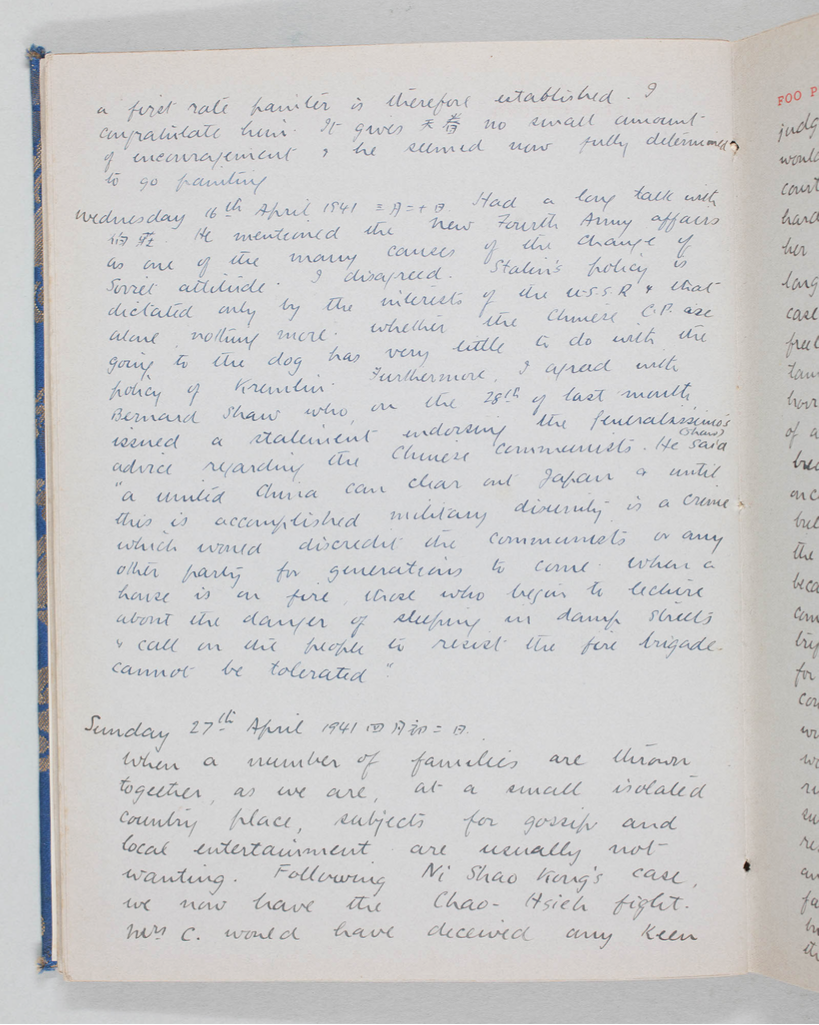 a first rate painter is therefore established. I
congratulate him. It gives 天眷 no small amount
of encouragement & he seemed now fully determined
to go painting
Wednesday 16th April 1941 三月二十日. Had a long talk with
He mentioned the New Fourth Army affairs
as one of the many causes of the change of
Soviet attitude. I disagreed. Stalin's policy is
dictated only by the interests of the U.S.S.R & that
alone, nothing more. Whether the Chinese C.P. are
going to the dog has very little to do with the
policy of Kremlin. Furthermore, I agreed with
Bernard Shaw who, on the 28th of last month
issued a statement endorsing the Generalissimo's
advice regarding the Chinese communists. He (Shaw) said
"a united China can clear out Japan & until
this is accomplished military disunity is a crime
which would discredit the communists or any
other party for generations to come. When a
house is on fire, those who begin to lecture
about the danger of sleeping in damp streets
& call on the people to resist the fire brigade
cannot be tolerated"
Sunday 27th April 1941 四月初二日.
When a number of families are thrown
together, as we are, at a small isolated
country place, subjects for gossip and
local entertainment are usually not
wanting. Following Ni Shao Kong's case,
we now have the Chao-Hsieh fight.
Mrs C. would have deceived any keen
FOO P
judg
would
court
hard
her
long
case